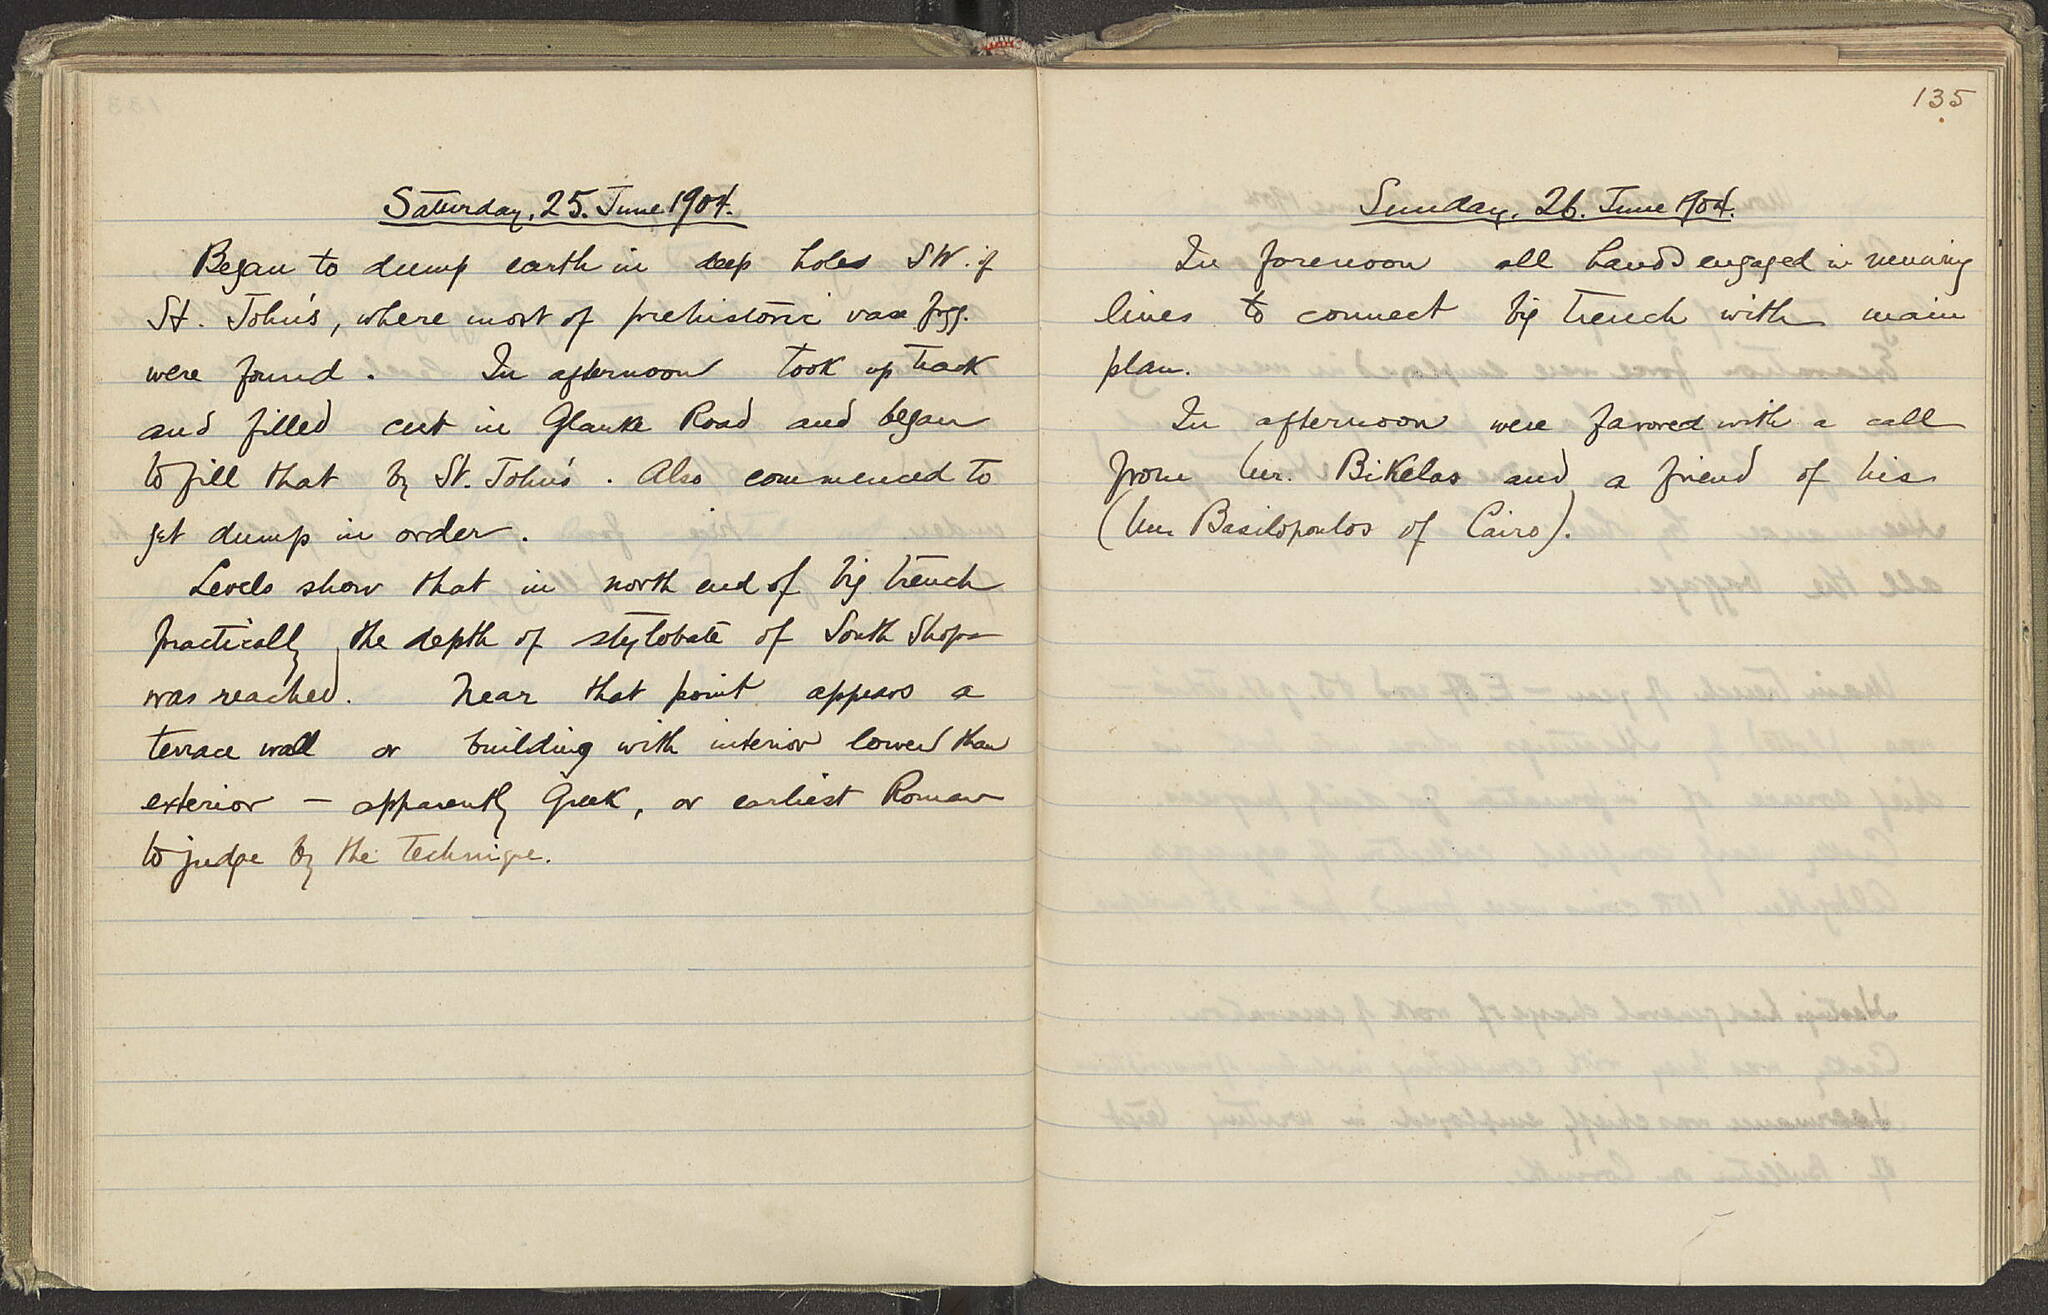 Saturday, 25. June 1904.
Began to dump earth in deep holes SW. of
St. John's, where most of prehistoric vase frgg.
were found. In afternoon took up track
and filled cut in Glauke Road and began
to fill that by St. John's. Also commenced to
get dump in order.
Levels show that in north end of big trench
practically the depth of stylobate of South Shops
was reached. Near that point appears a
terrace wall or building with interior lower than
exterior — apparently Greek, or earliest Roman
to judge by the technique.
135
Sunday, 26. June 1904.
In forenoon all hands engaged in running
lines to connect big trench with main
plan.
In afternoon were favored with a call
from Mr. Bikelas and a friend of his
(Mr. Basilopoulos of Cairo).